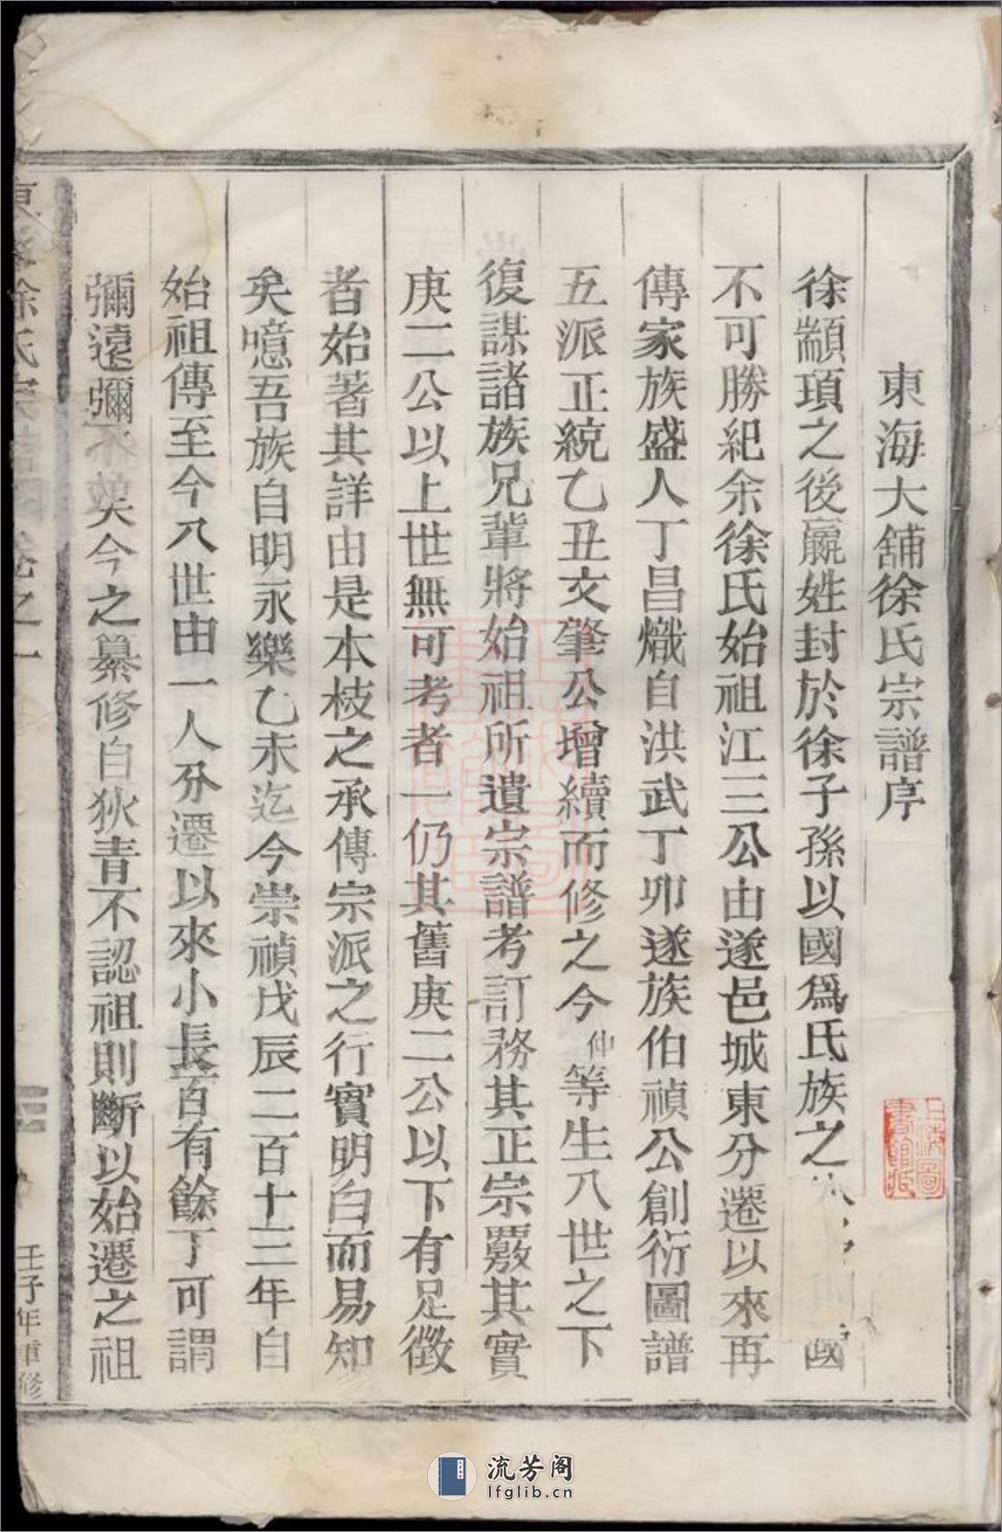 東海大舖徐氏宗譜序
徐顓頊之後嬴姓封於徐子孫以國爲氏族之國
不可勝紀余徐氏始祖江三公由遂邑城東分遷以來再
傳家族盛人丁昌熾自洪武丁卯遂族伯禎公創衍圖譜
五派正統乙丑文肇公增續而修之今仲等生八世之下
復謀諸族兄輩將始祖所遺宗譜考訂務其正宗覈其實
庚二公以上世無可考者一仍其舊庚二公以下有足徵
者始著其詳由是本枝之承傳宗派之行實明白而易知
矣噫吾族自明永樂乙未迄今崇禎戊辰二百十三年自
始祖傳至今八世由一人分遷以來小長百有餘丁可謂
彌遠彌矣今之纂修自狄青不認祖則斷以始遷之祖
東海徐氏宗譜 卷之一
壬子年重修
上海圖書館藏
流芳阁
lfglib.cn